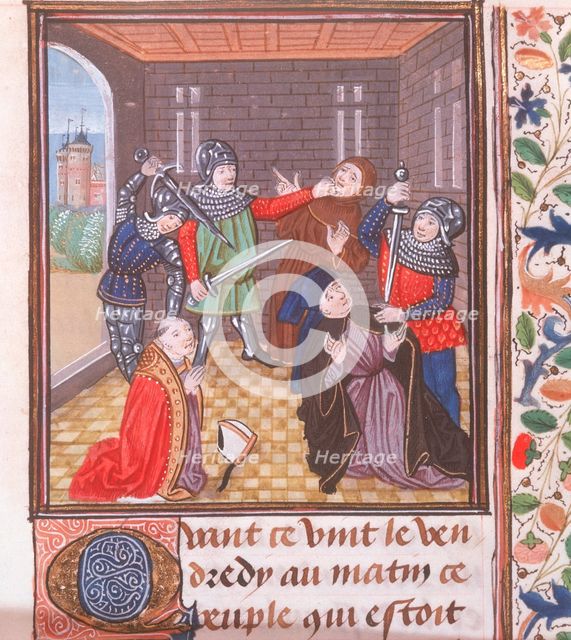 Quant ce vint le ven
dredy au matin ce
peuple qui estoit
Heritage Heritage
Heritage Heritage
Heritage Heritage
Heritage Heritage